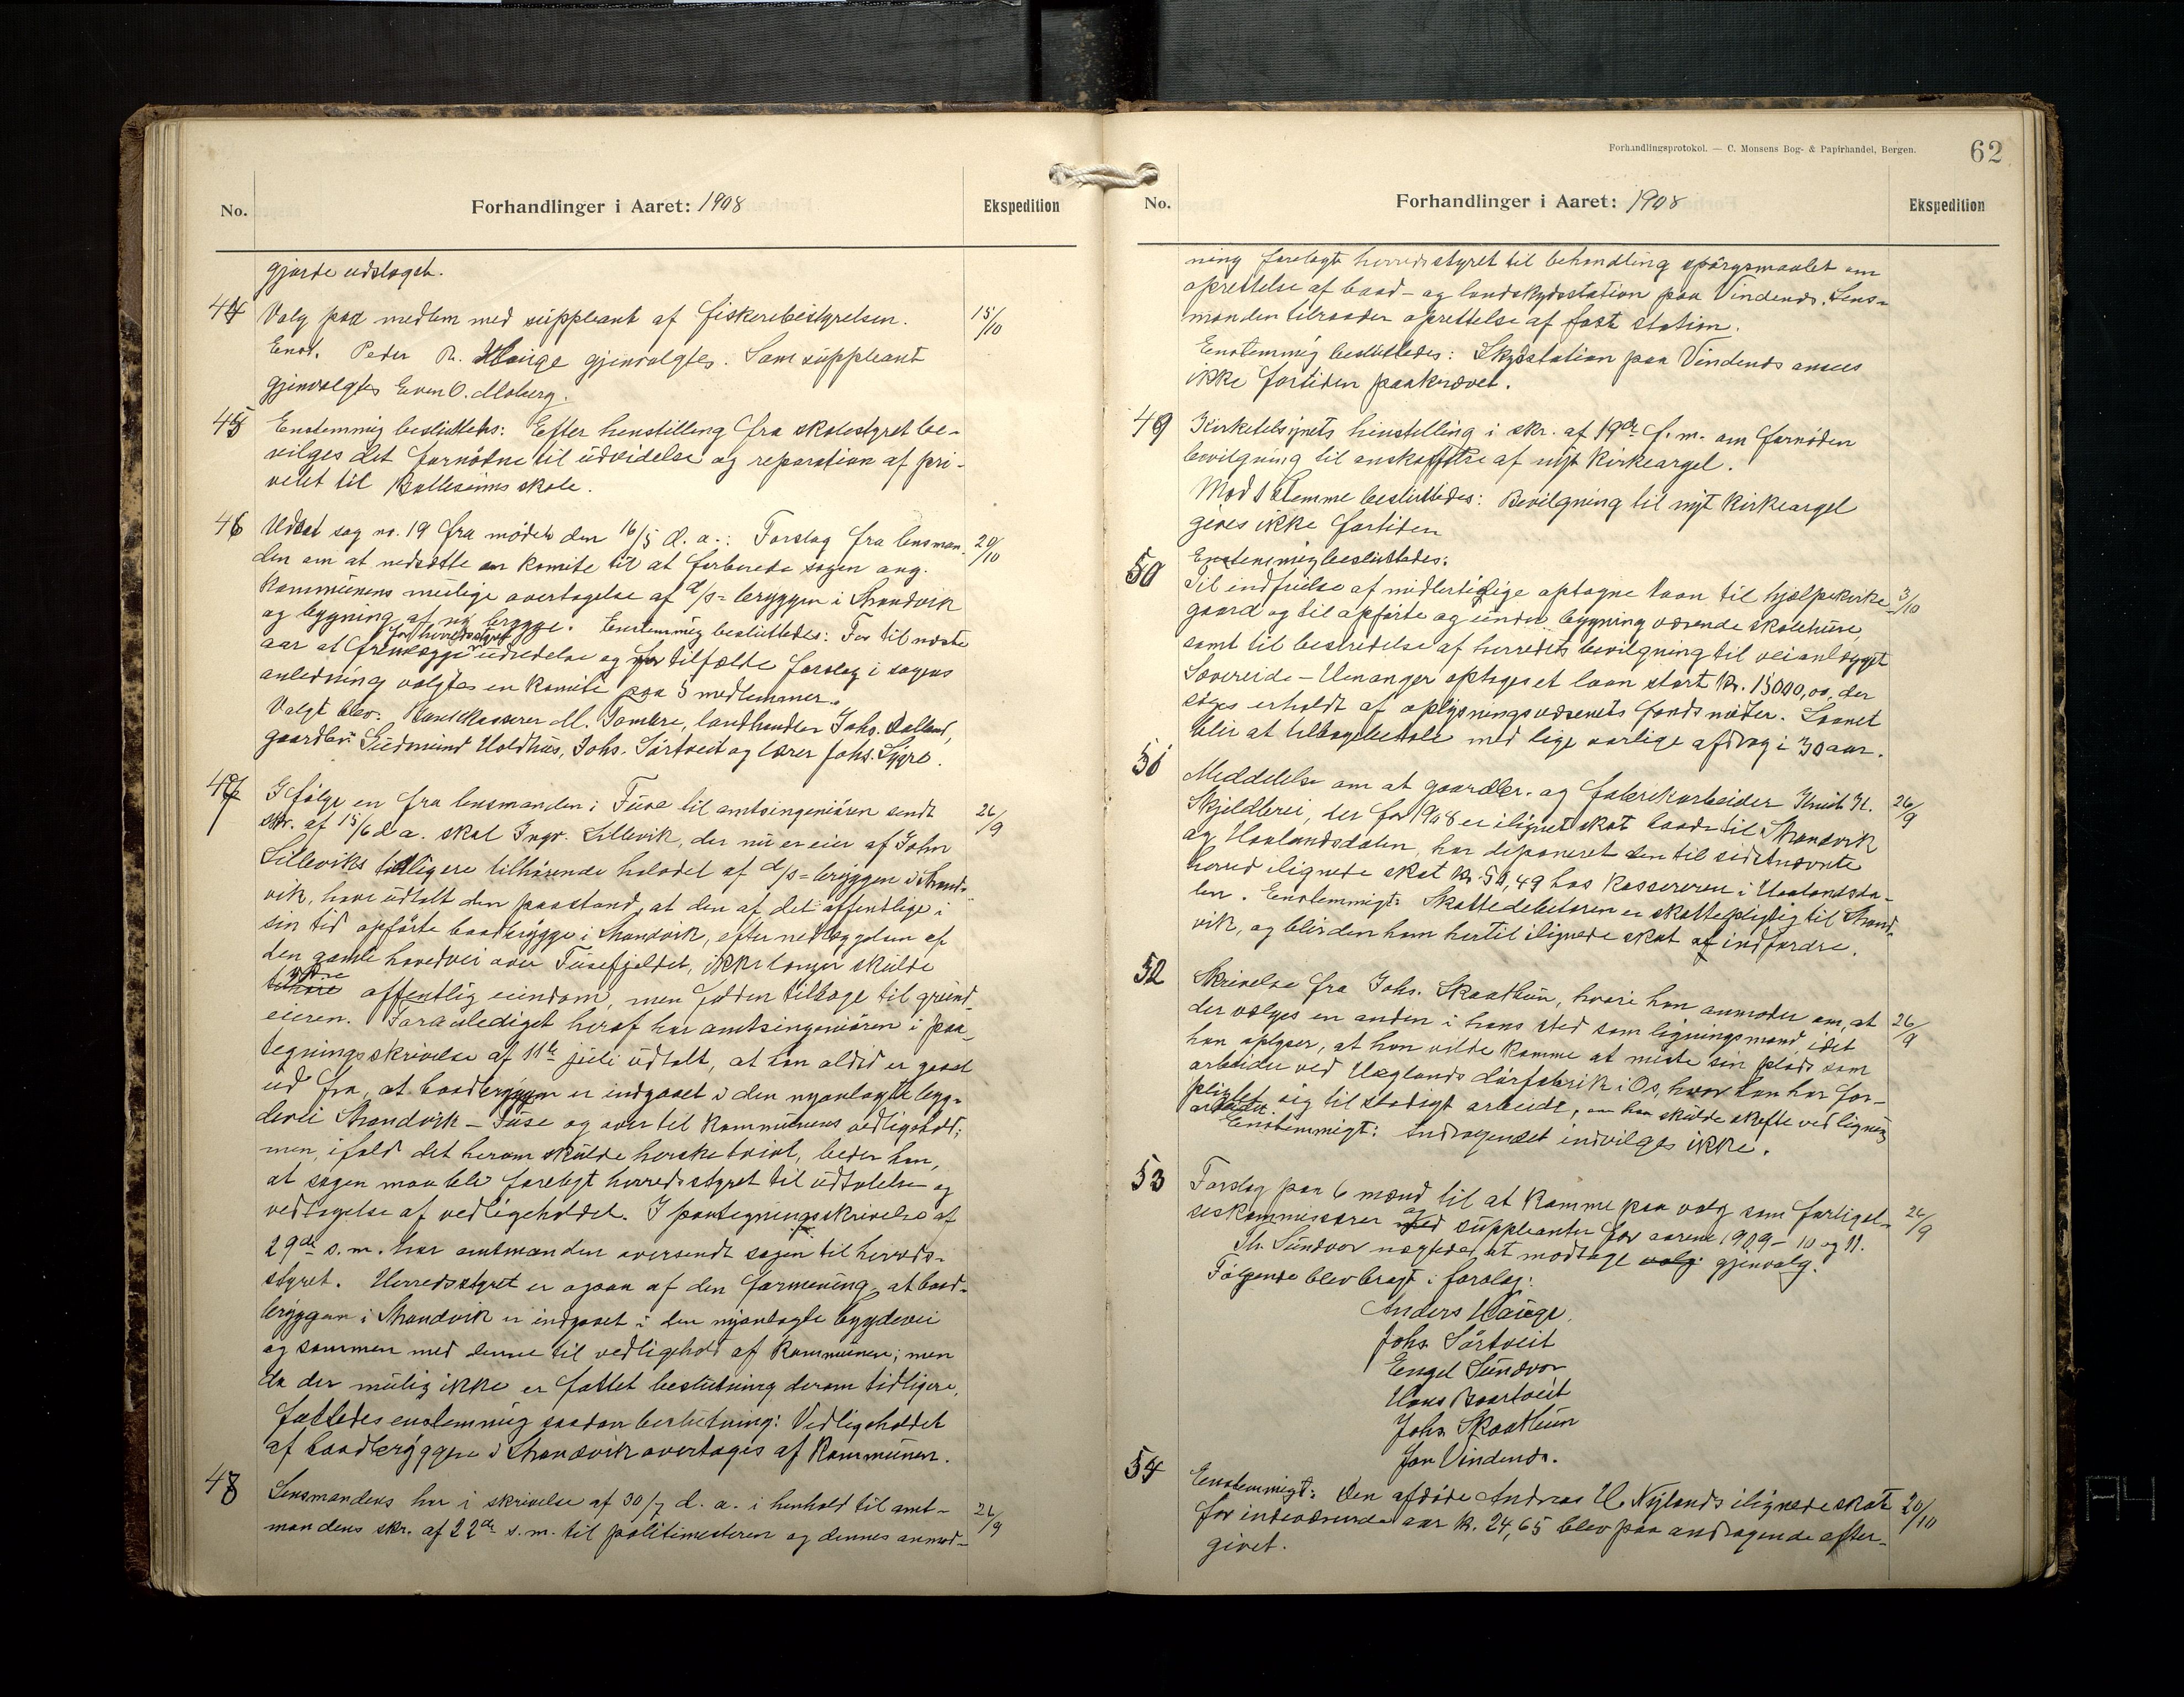 No.
Forhandlinger i Aaret: 1908
Ekspedition
gjorde udslaget.
44 Valg paa medlem med suppleant af fiskeribestyrelsen. 15/10
Enst. Peder R. Hauge gjenvalgtes. Som suppleant
gjenvalgtes Even O. Moberg.
45 Enstemmig besluttets: Efter henstilling fra skolestyret be-
vilges det fornödne til udvidelse og reparation af pri-
vetet til Bolleseims skole.
46 Udsat sag no. 19 fra mödet den 16/5 d. a.: Forslag fra lensman- 20/10
den om at nedsætte en komite til at forberede sagen ang.
kommunens mulige overtagelse af d/s-bryggen i Strandvik
og bygning af ny brygge. Enstemmig besluttedes: For til næste
aar at fremlægge for herredsstyret udredelse og tilfælde forslag i sagens
anledning valgtes en komite paa 5 medlemmer.
Valgt blev: M. Tombre, landhandler Johs. Dalland,
gaardbr. Gudmund Holdhus, Johs. Sörtveit og lærer Johs. Sygre.
47 Ifölge en fra lensmanden i Fuse til amtsingeniören sendt 26/9
skr. af 15/6 d. a. skal Ingv. Lillevik, der nu er eier af John
Lilleviks tidligere tilhörende halvdel af d/s-bryggen i Strand-
vik, have udtalt den paastand, at den af det offentlige i
sin tid opförte baadbrygge i Strandvik, efter nedlæggelsen af
den gamle hovedvei over Fusefjeldet, ikke længer skulde
tilhöre være offentlig eiendom, men falden tilbage til grund-
eieren. Foranlediget heraf har amtsingeniören i paa-
tegningsskrivelse af 11te juli udtalt, at han altid er gaaet
ud fra, at baadbryggen er indgaaet i den nyanlagte byg-
devei Strandvik – Fuse og over til kommunens vedligehold;
men, ifald det herom skulde herske tvivl, beder han,
at sagen maa bli forelagt herredsstyret til udtalelse og
vedtagelse af vedligeholdet. I paategningsskrivelse af
29de s. m. har amtmanden oversendt sagen til herreds-
styret. Herredsstyret er ogsaa af den formening, at baad-
bryggen i Strandvik er indgaaet i den nyanlagte bygdevei
og sammen med denne til vedligehold af kommunen; men
da der mulig ikke er fattet beslutning derom tidligere,
fattedes enstemmig saadan beslutning: Vedligeholdet
af baadbryggen i Strandvik overtages af kommunen.
48 Lensmandens har i skrivelse af 30/7 d. a. i henhold til amt- 26/9
mandens skr. af 22de s. m. til politimesteren og dennes anmod-
Forhandlingsprotokol. — C. Monsens Bog- & Papirhandel, Bergen.
62
No.
Forhandlinger i Aaret: 1908
Ekspedition
ning forelagt herredsstyret til behandling spörgsmaalet om
oprettelse af baad- og landskydsstation paa Vindenes. Lens-
manden tilraader oprettelse af fast station.
Enstemmig besluttedes: Skydsstation paa Vindenes ansees
ikke fortiden paakrævet.
49 Kirketilsynets henstilling i skr. af 19de f. m. om fornöden
bevilgning til anskaffelse af nyt kirkeorgel.
Mod 1 stemme besluttedes: Bevilgning til nyt kirkeorgel
gives ikke fortiden
Enstemmig besluttedes:
50 Til indfrielse af midlertidige optagne laan til hjælpekirke- 3/10
gaard og til opförte og under bygning værende skolehuse,
samt til bestridelse af herredets bevilgning til veianlægget
Sævereide – Uenanger optages et laan stort kr. 15000,00, der
söges erholdt af oplysningsvæsenets fonds midler. Laanet
blir at tilbagebetale med lige aarlige afdrag i 30 aar.
51 Meddelelse om at gaardbr. og fabrikarbeider Knut H. 26/9
Skjeldbrei, der for 1908 er ilignet skat baade til Strandvik
og Haalandsdalen, har deponeret den til sidstnævnte
herred ilignede skat kr. 50,49 hos kassereren i Haalandsda-
len. Enstemmigt: Skattedebitoren er skattepligtig til Strand-
vik, og blir den ham hertil ilignede skat at indfordre.
52 Skrivelse fra Johs. Skaathun, hvori han anmoder om, at 26/9
der vælges en anden i hans sted som ligningsmand idet
han oplyser, at han vilde komme at miste sin plads som
arbeider ved Hæglands dörfabrik i Os, hvor han har for-
pligtet sig til stadigt arbeide, om han skulde skofte ved ligning
arbeidet.
Enstemmigt: Andragendet indvilges ikke.
53 Forslag paa 6 mænd til at komme paa valg som forligel- 26/9
seskommissærer og med suppleanter for aarene 1909 – 10 og 11.
Th. Sundvor nægtedes at modtage valg gjenvalg.
Fölgende blev bragt i forslag:
Anders Hauge.
Johs Sörtveit
Engel Sundvor
Hans Baartveit
Johs Skaathun
Jon Vindenes.
54 Enstemmigt: Den afdöde Andreas H. Nylands ilignede skat 20/10
for indeværende aar kr. 24,65 blev paa andragende efter-
givet.